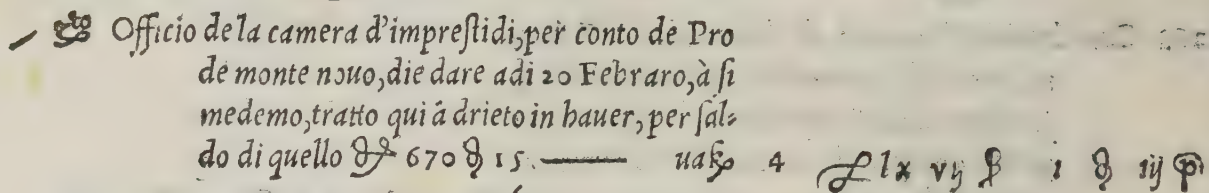 Officio de la camera d'impreſtidi, per conto de Pro
de monte nouo, die dare adi 20 Febraro, à ſi
medemo, tratto qui á drieto in hauer, per ſal⸗
do di quello 670 15. —— ua 4 lx vij 1 iij